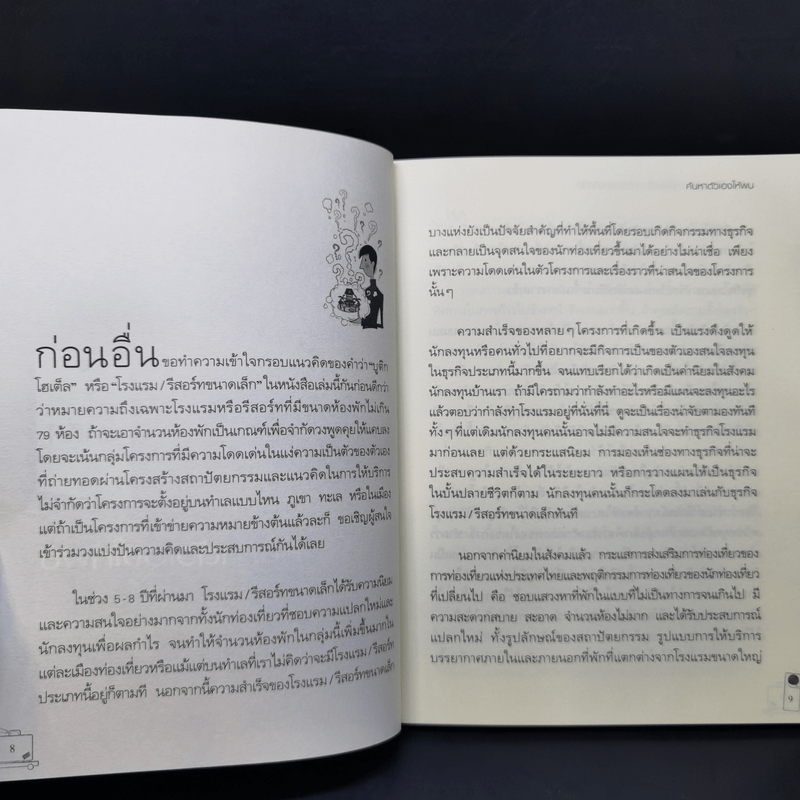 ก่อนอื่น ขอทำความเข้าใจกรอบแนวคิดของคำว่า"บูติก
โฮเต็ล" หรือ"โรงแรม/รีสอร์ทขนาดเล็ก"ในหนังสือเล่มนี้กันก่อนดีกว่า
ว่าหมายความถึงเฉพาะโรงแรมหรือรีสอร์ทที่มีขนาดห้องพักไม่เกิน
79 ห้อง ถ้าจะเอาจำนวนห้องพักเป็นเกณฑ์เพื่อจำกัดวงพูดคุยให้แคบลง
โดยจะเน้นกลุ่มโครงการที่มีความโดดเด่นในแง่ความเป็นตัวของตัวเอง
ที่ถ่ายทอดผ่านโครงสร้างสถาปัตยกรรมและแนวคิดในการให้บริการ
ไม่จำกัดว่าโครงการจะตั้งอยู่บนทำเลแบบไหน ภูเขา ทะเล หรือในเมือง
แต่ถ้าเป็นโครงการที่เข้าข่ายความหมายข้างต้นแล้วละก็ ขอเชิญผู้สนใจ
เข้าร่วมวงแบ่งปันความคิดและประสบการณ์กันได้เลย
ในช่วง 5-8 ปีที่ผ่านมา โรงแรม/รีสอร์ทขนาดเล็กได้รับความนิยม
และความสนใจอย่างมากจากทั้งนักท่องเที่ยวที่ชอบความแปลกใหม่และ
นักลงทุนเพื่อผลกำไร จนทำให้จำนวนห้องพักในกลุ่มนี้เพิ่มขึ้นมากใน
แต่ละเมืองท่องเที่ยวหรือแม้แต่บนทำเลที่เราไม่คิดว่าจะมีโรงแรม/รีสอร์ท
ประเภทนี้อยู่ก็ตามที นอกจากนี้ความสำเร็จของโรงแรม/รีสอร์ทขนาดเล็ก
8
ค้นหาตัวเองให้พบ
บางแห่งยังเป็นปัจจัยสำคัญที่ทำให้พื้นที่โดยรอบเกิดกิจกรรมทางธุรกิจ
และกลายเป็นจุดสนใจของนักท่องเที่ยวขึ้นมาได้อย่างไม่น่าเชื่อ เพียง
เพราะความโดดเด่นในตัวโครงการและเรื่องราวที่น่าสนใจของโครงการ
นั้นๆ
ความสำเร็จของหลายๆโครงการที่เกิดขึ้น เป็นแรงดึงดูดให้
นักลงทุนหรือคนทั่วไปที่อยากจะมีกิจการเป็นของตัวเองสนใจลงทุน
ในธุรกิจประเภทนี้มากขึ้น จนแทบเรียกได้ว่าเกิดเป็นค่านิยมในสังคม
นักลงทุนบ้านเรา ถ้ามีใครถามว่ากำลังทำอะไรหรือมีแผนจะลงทุนอะไร
แล้วตอบว่ากำลังทำโรงแรมอยู่ที่นั่นที่นี่ ดูจะเป็นเรื่องน่าจับตามองทันที
ทั้งๆที่แต่เดิมนักลงทุนคนนั้นอาจไม่มีความสนใจจะทำธุรกิจโรงแรม
มาก่อนเลย แต่ด้วยกระแสนิยม การมองเห็นช่องทางธุรกิจที่น่าจะ
ประสบความสำเร็จได้ในระยะยาว หรือการวางแผนให้เป็นธุรกิจ
ในบั้นปลายชีวิตก็ตาม นักลงทุนคนนั้นก็กระโดดลงมาเล่นกับธุรกิจ
โรงแรม/รีสอร์ทขนาดเล็กทันที
นอกจากค่านิยมในสังคมแล้ว กระแสการส่งเสริมการท่องเที่ยวของ
การท่องเที่ยวแห่งประเทศไทยและพฤติกรรมการท่องเที่ยวของนักท่องเที่ยว
ที่เปลี่ยนไป คือ ชอบแสวงหาที่พักในแบบที่ไม่เป็นทางการจนเกินไป มี
ความสะดวกสบาย สะอาด จำนวนห้องไม่มาก และได้รับประสบการณ์
แปลกใหม่ ทั้งรูปลักษณ์ของสถาปัตยกรรม รูปแบบการให้บริการ
บรรยากาศภายในและภายนอกที่พักที่แตกต่างจากโรงแรมขนาดใหญ่
9